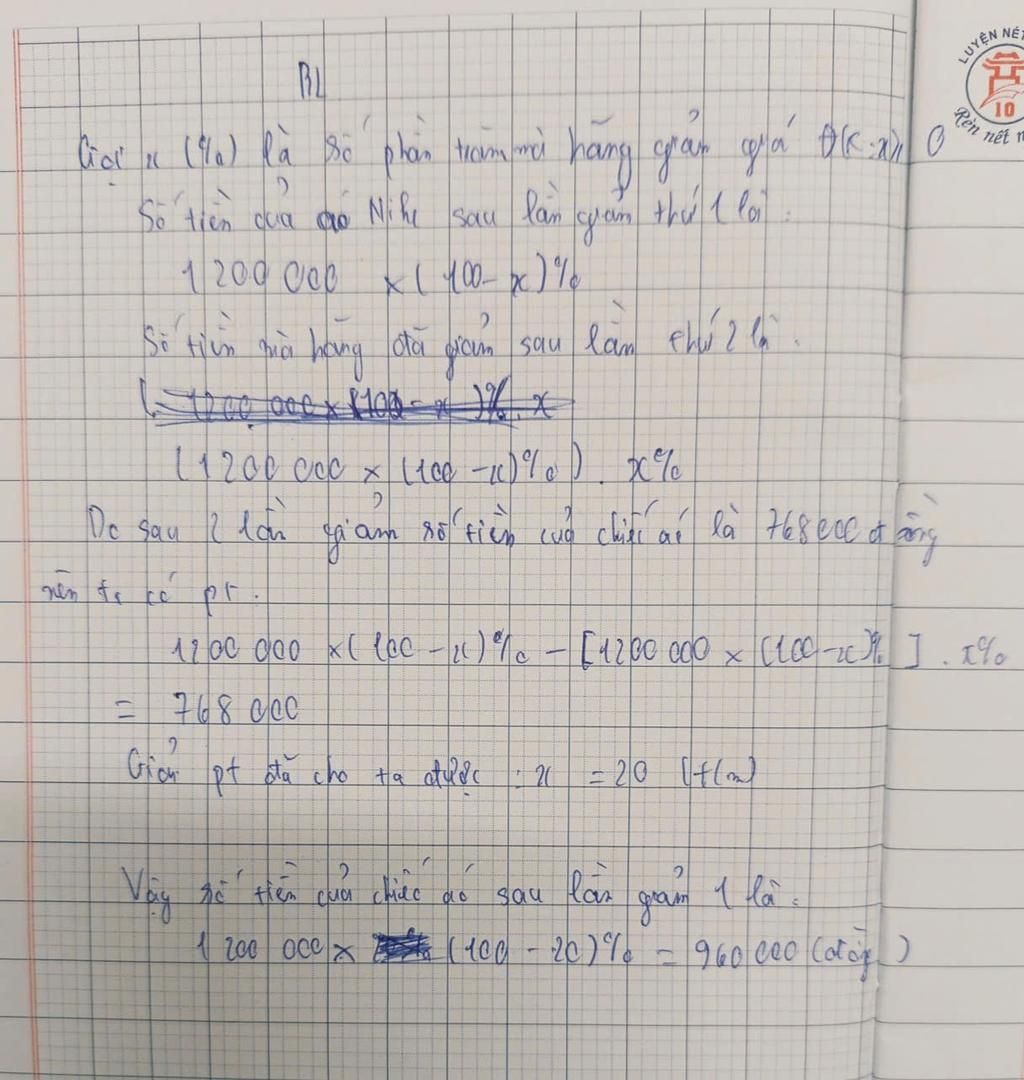 BL
LUYỆN NÉT
10
Rèn nét n
Gọi x (%) là số phần trăm mà hãng giảm giá Đ(K: x > 0
Số tiền của áo Nike sau lần giảm thứ 1 là:
1 200 000 x ( 100 - x )%
Số tiền mà hãng đã giảm sau lần thứ 2 là:
= 1200 000 x (100 - x )%. x
(1200 000 x (100 - x)%) . x%
Do sau 2 lần giảm số tiền của chiếc áo là 768000 đồng
nên ta có pt.
1200 000 x (100 - x)% - [1200 000 x (100-x)%] . x%
= 768 000
Giải pt đã cho ta được : x = 20 (t/m)
Vậy số tiền của chiếc áo sau lần giảm 1 là:
1 200 000 x (100 - 20)% = 960 000 (đồng)